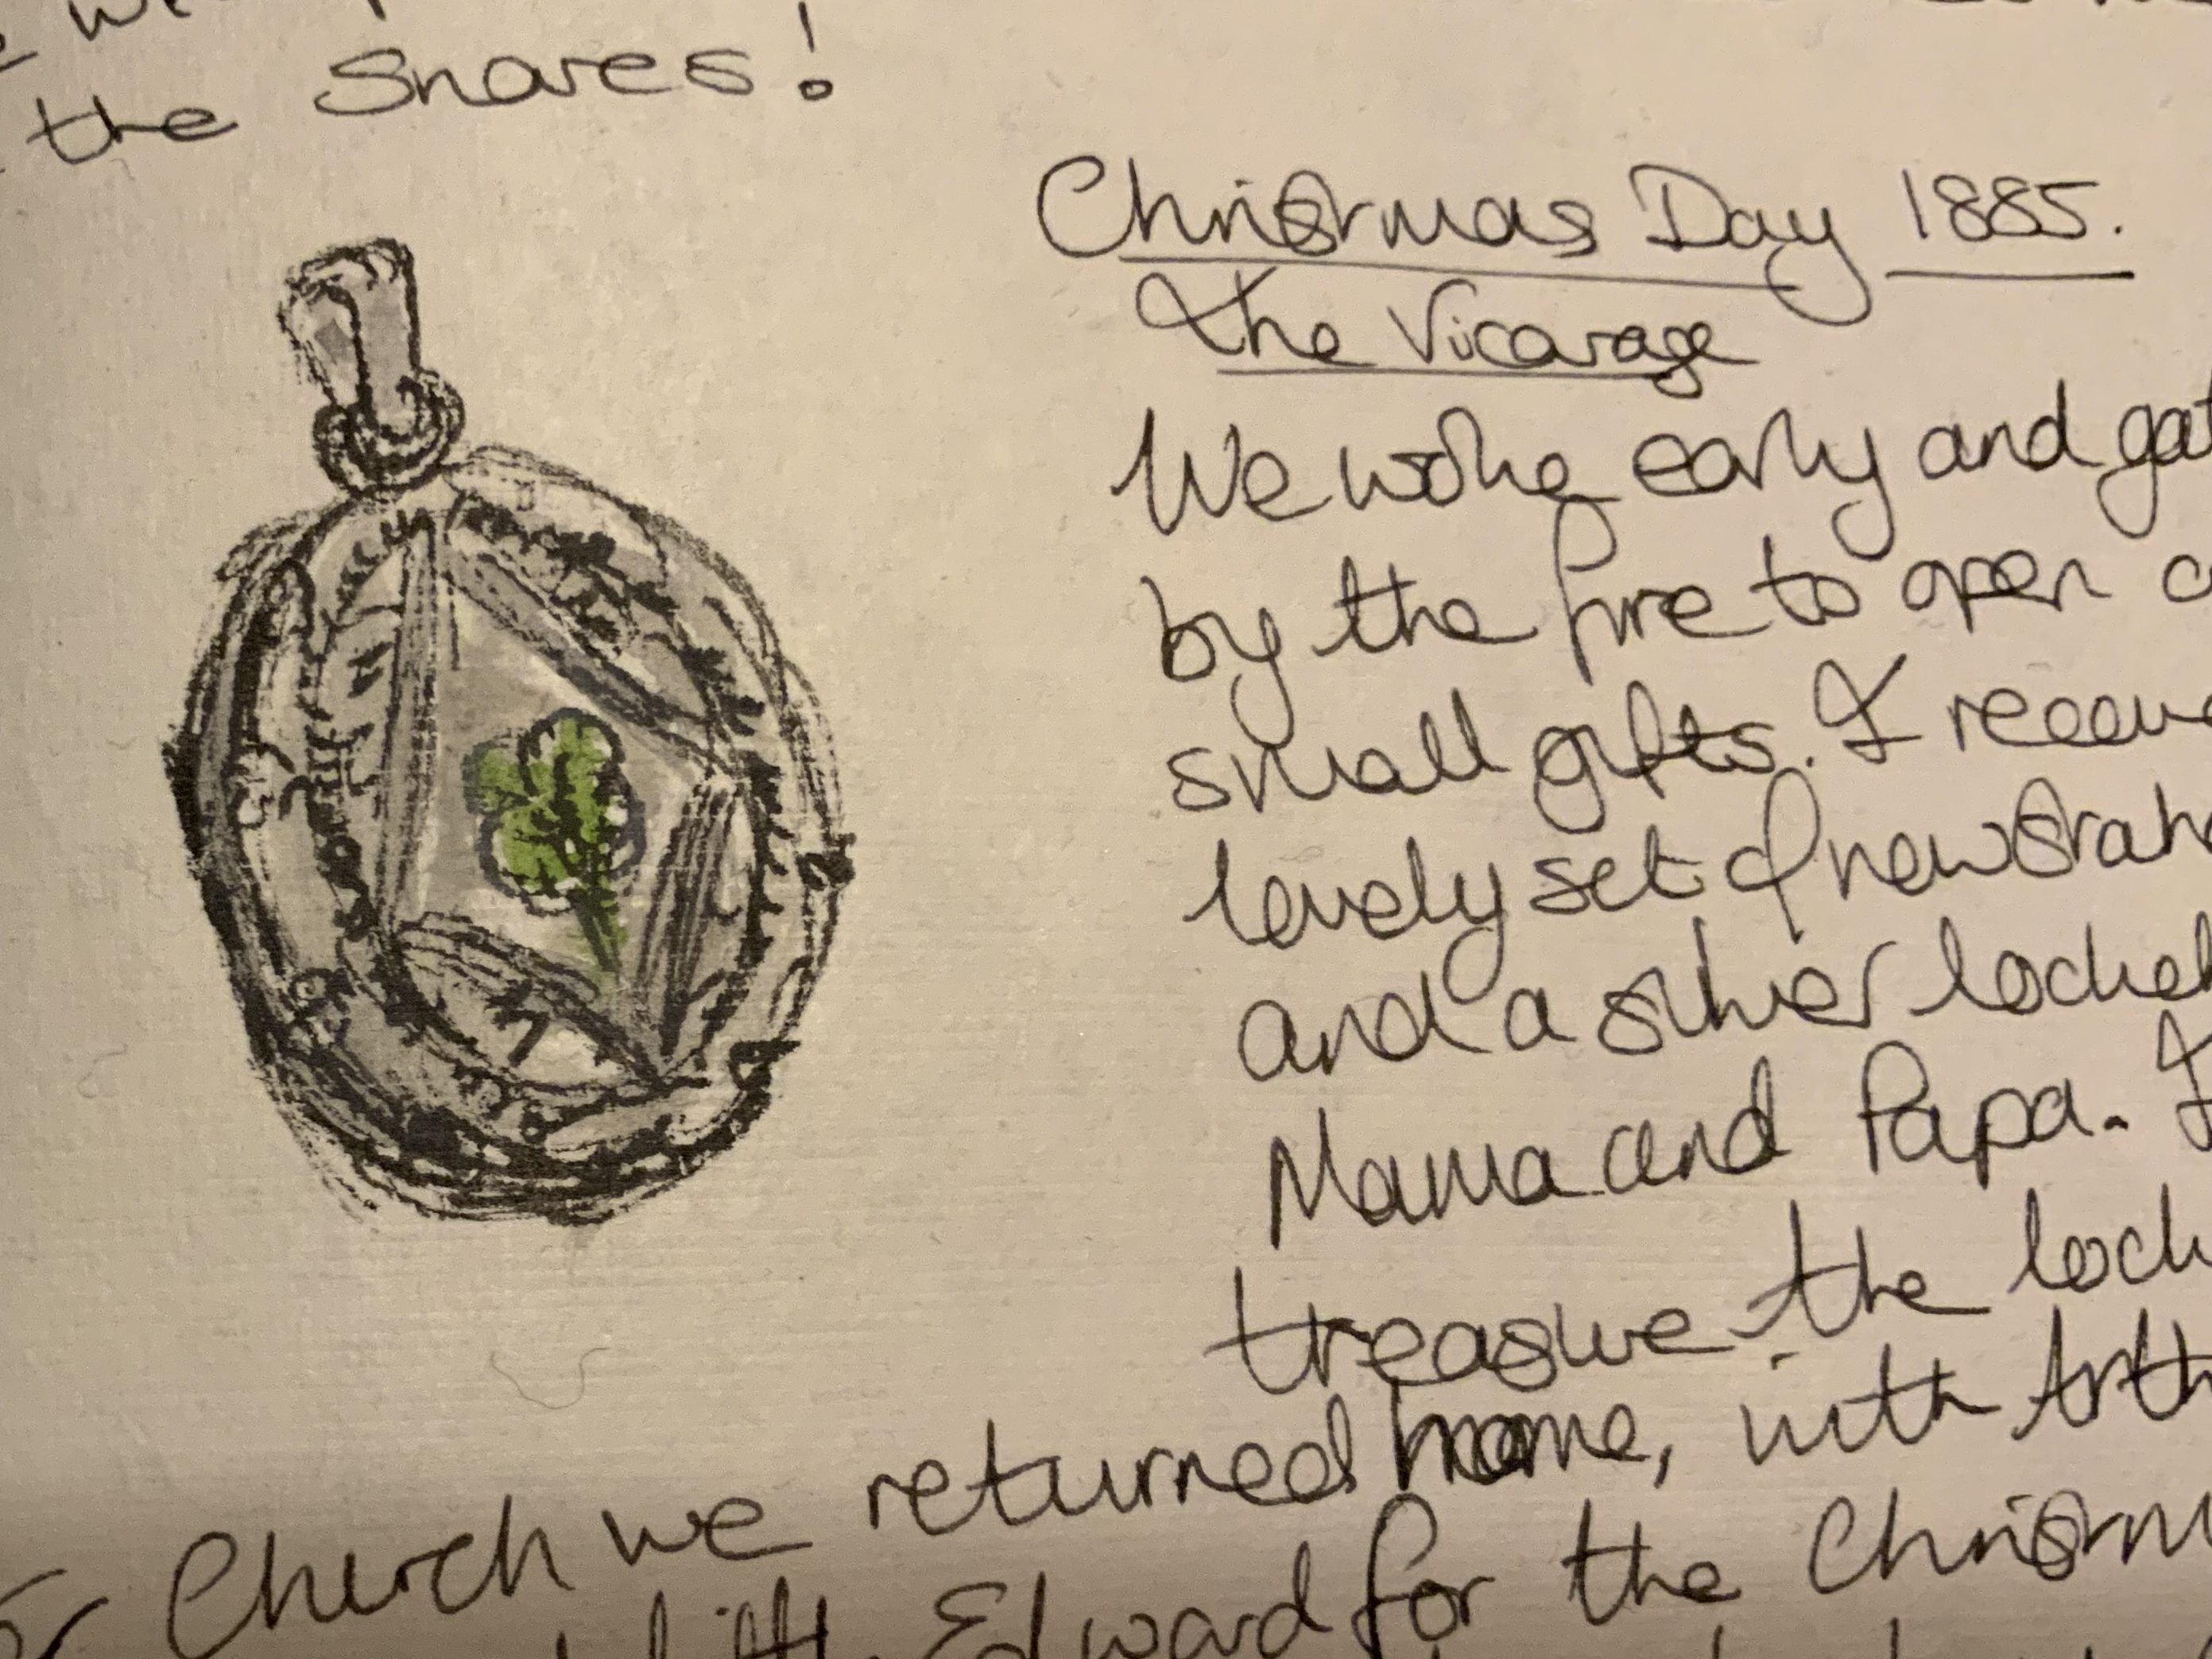 the Snares!
Christmas Day 1885.
The Vicarage
We woke early and gat
by the fire to open
small gifts. I receiv
lovely set of new
and a silver locket
Mama and Papa. I
treasure the lock
Church we returned home, with Arth
Edward for the Christm